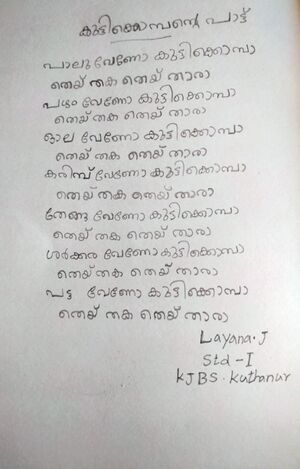 കുട്ടിക്കൊമ്പന്റെ പാട്ട്
പാലു വേണോ കുട്ടിക്കൊമ്പാ
തെയ് തക തെയ് താരാ
പഴം വേണോ കുട്ടിക്കൊമ്പാ
തെയ് തക തെയ് താരാ
ഓല വേണോ കുട്ടിക്കൊമ്പാ
തെയ് തക തെയ് താരാ
കരിമ്പ് വേണോ കുട്ടിക്കൊമ്പാ
തെയ് തക തെയ് താരാ
തേങ്ങ വേണോ കുട്ടിക്കൊമ്പാ
തെയ് തക തെയ് താരാ
ശർക്കര വേണോ കുട്ടിക്കൊമ്പാ
തെയ് തക തെയ് താരാ
പട്ട വേണോ കുട്ടിക്കൊമ്പാ
തെയ് തക തെയ് താരാ
Layana. J
Std - I
KJBS. Kuthanur